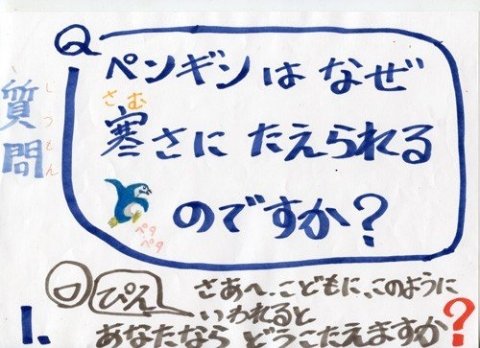 Q
質問
しつもん
ペンギンは なぜ
さむ
寒さに たえられる
のですか？
ペタ
ペタ
1.
ぴん
さあへ、こどもに、このように
いわれると
あなたなら どうこたえますか？